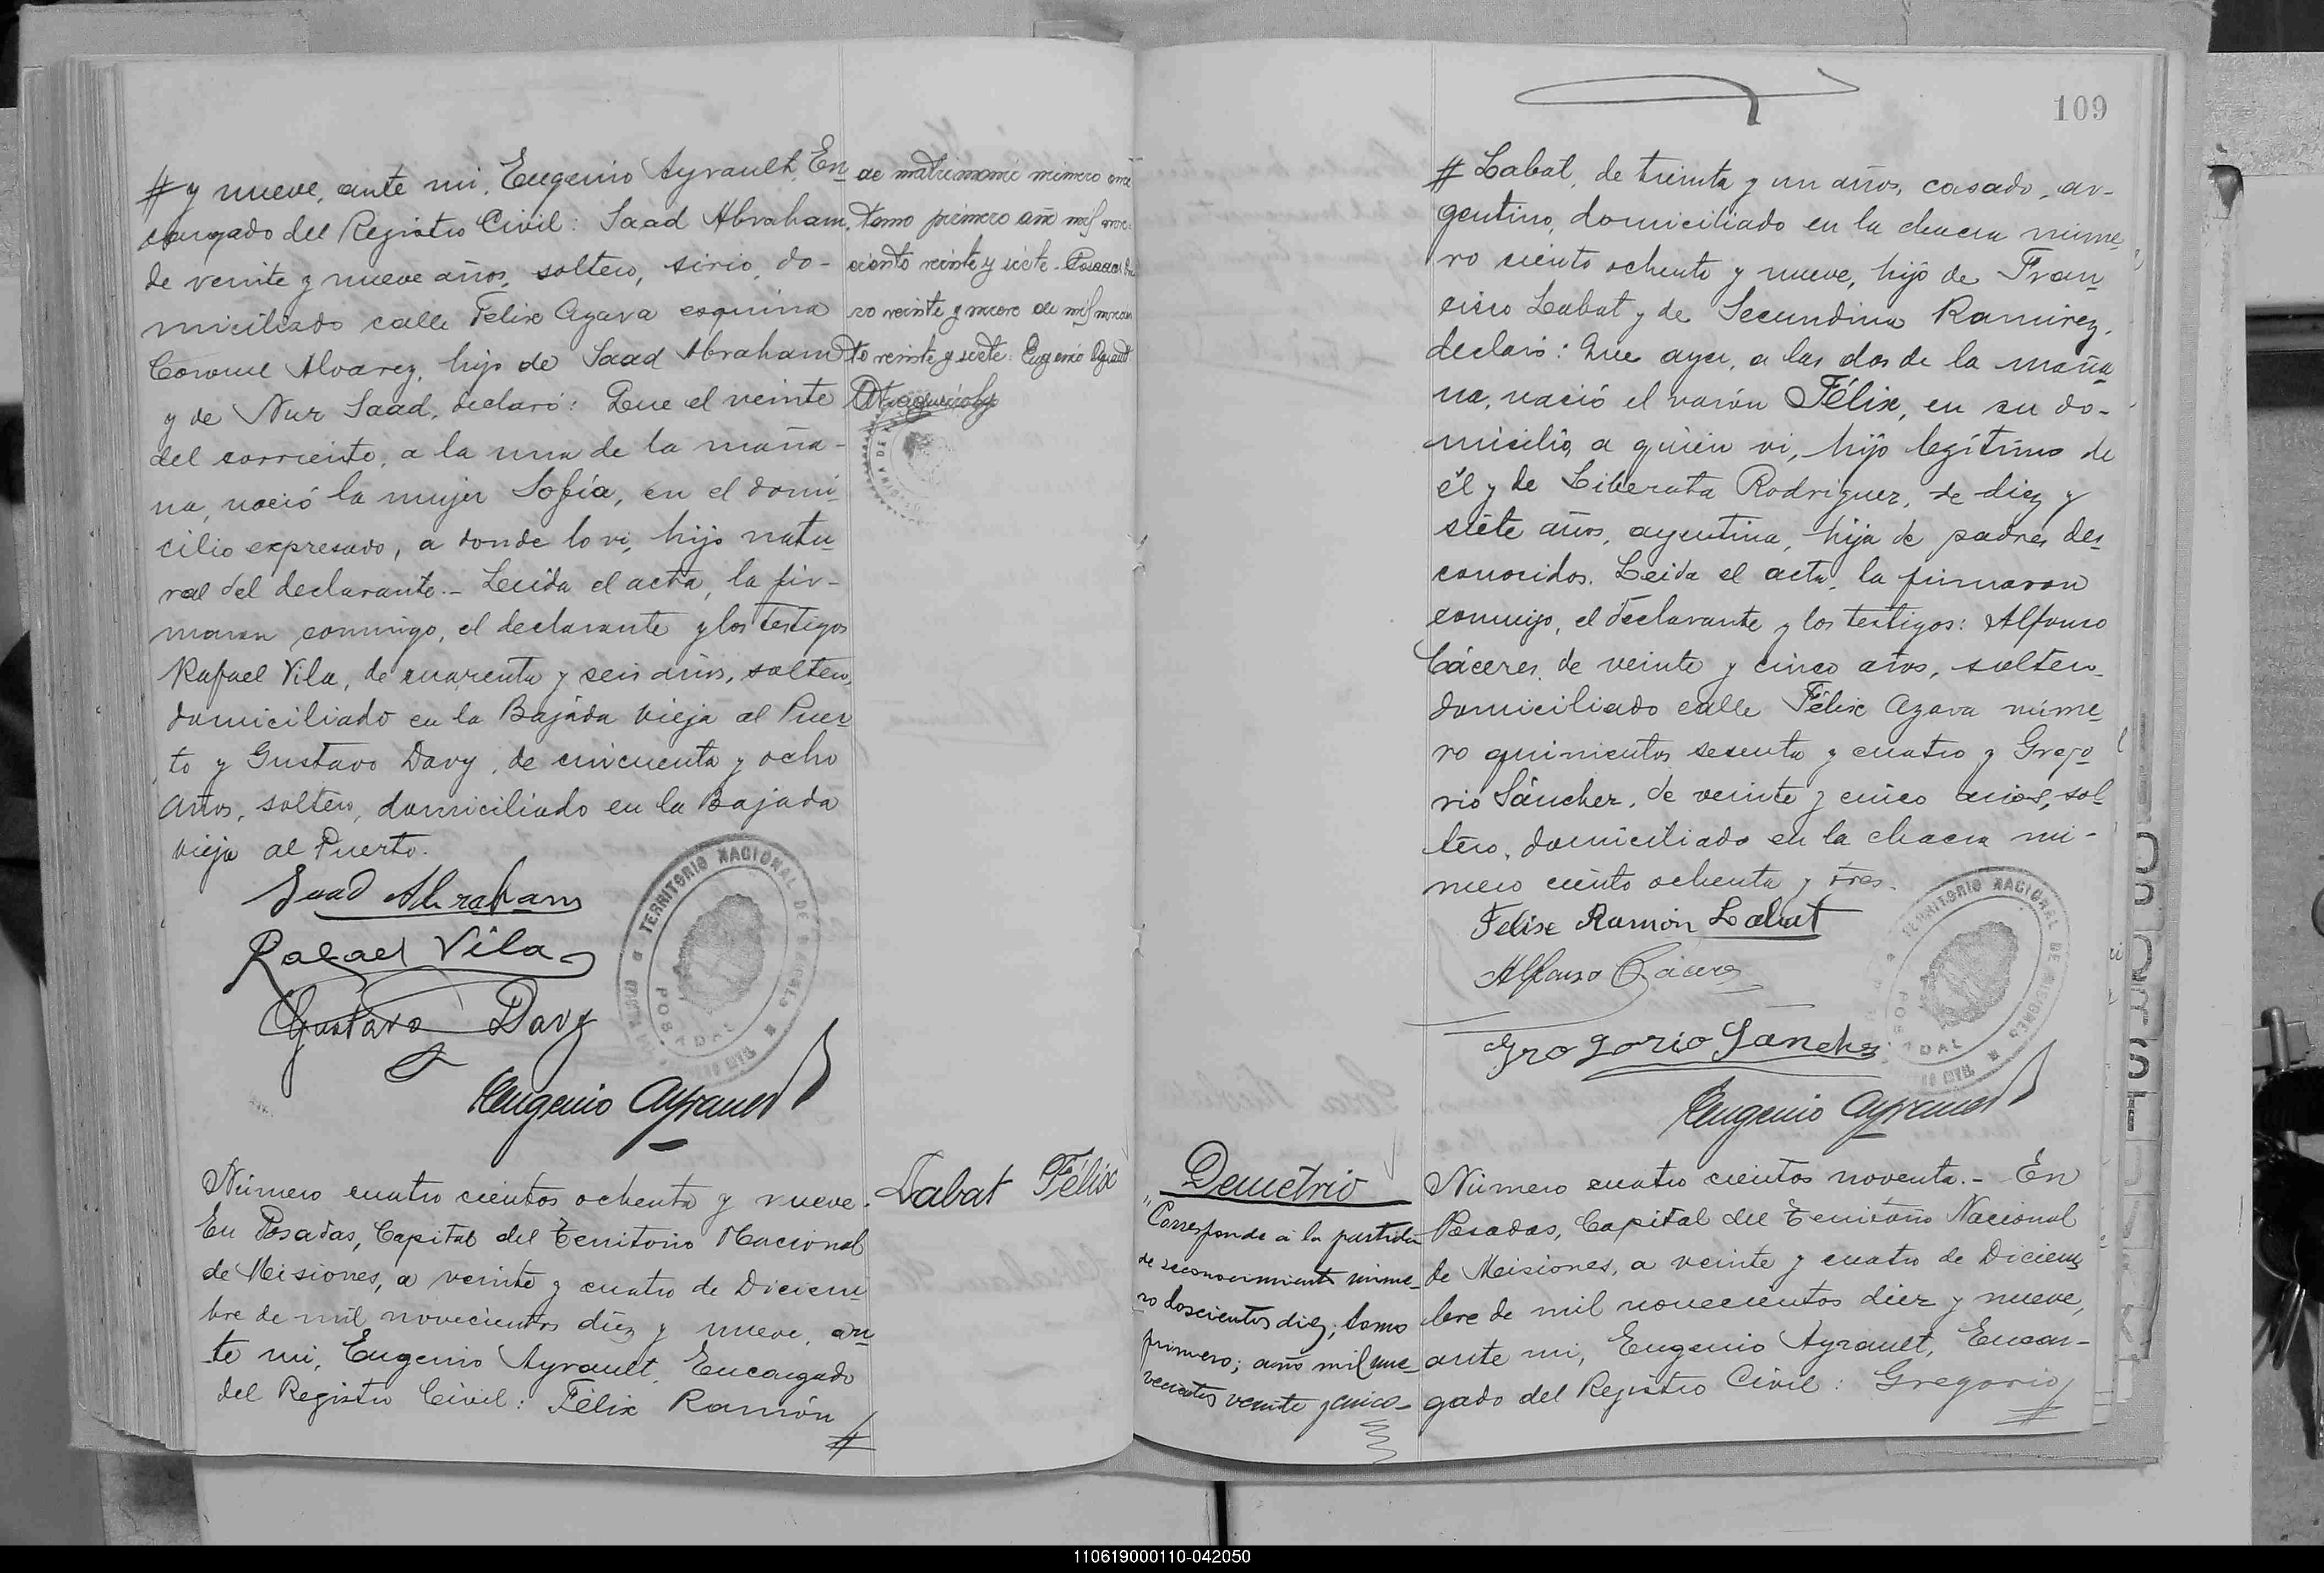 # y nueve, ante mi, Eugenio Ayrault, En
cargado del Registro Civil: Saad Abraham,
de veinte y nueve años, soltero, sirio, do-
miciliado calle Felix Azara esquina
Coronel Alvarez, hijo de Saad Abraham
y de Nur Saad, declaró: Que el veinte
del corriente, a la una de la maña-
na, nació la mujer Sofía, en el domi
cilio expresado, a donde lo vi, hijo natu
ral del declarante.- Leida el acta, la fir-
maron conmigo, el declarante y los testigos
Rafael Vila, de cuarenta y seis años, soltero,
domiciliado en la Bajada vieja al Puer
to y Gustavo Davy, de cincuenta y ocho
años, soltero, domiciliado en la Bajada
vieja al Puerto.
de matrimonio número
Tomo primero año mil nove
cientos veinte y siete - Posadas
ro veinte y nueve de mil novecien
to veinte y siete: Eugenio Ayrault
Saad Abraham
Rafael Vila
Gustavo Davy
Eugenio Ayrault
TERRITORIO NACIONAL DE MISIONES
POSADAS
Número cuatro cientos ochenta y nueve.
En Posadas, Capital del Territorio Nacional
de Misiones, a veinte y cuatro de Diciem
bre de mil novecientos diez y nueve, an
te mi, Eugenio Ayrault, Encargado
del Registro Civil: Félix Ramón
#
Labat Félix
109
# Labat, de treinta y un años, casado, ar-
gentino, domiciliado en la chacra núme
ro ciento ochenta y nueve, hijo de Fran
cisco Labat y de Secundina Ramirez,
declaró: Que ayer, a las dos de la maña
na, nació el varón Félix, en su do-
micilio, a quien vi, hijo legítimo de
él y de Liberata Rodriguez, de diez y
siete años, argentina, hija de padres des
conocidos. Leida el acta, la firmaron
conmigo, el declarante y los testigos: Alfonso
Cáceres, de veinte y cinco años, soltero
domiciliado calle Félix Azara núme
ro quinientos sesenta y cuatro y Grego
rio Sáncher, de veinte y cinco años, sol
tero, domiciliado en la chacra nú-
mero ciento ochenta y tres.
Felix Ramón Labat
Alfonso Cáceres
Grogorio Sanchez
Eugenio Ayrault
TERRITORIO NACIONAL DE MISIONES
POSADAS
Demetrio
"Corresponde a la partida
de reconocimiento núme-
ro doscientos diez; tomo
primero; año mil nue
vecientos veinte y cinco-
Número cuatro cientos noventa.- En
Posadas, Capital del Territorio Nacional
de Misiones, a veinte y cuatro de Diciem
bre de mil novecientos diez y nueve,
ante mi, Eugenio Ayrault, Encar-
gado del Registro Civil: Gregorio
#
110619000110-042050